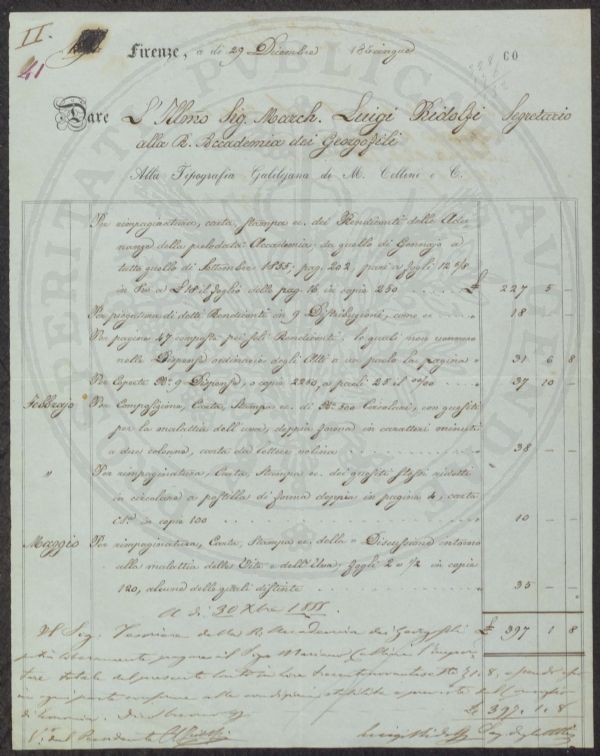 II.
41
Firenze, a dì 29 Dicembre 185cinque
60
Dare L'Illmo Sig. March. Luigi Ridolfi Segretario
alla R. Accademia dei Georgofili
Alla Tipografia Galilejana di M. Cellini e C.
Per rimpaginatura, carta, stampa ec. dei Rendiconti delle Adu-
nanze della prelodata Accademia, da quello di Gennajo a
tutto quello di Settembre 1855; pag. 202, pari a fogli 12 5/8
in il foglio delle pag. 16 in copie 250 £ 227 5 -
Per piegatura di detti Rendiconti in 9 Distribuzioni, come 18 - -
Per pagine 47 composte pei soli Rendiconti, le quali non vennero
nelle Dispense ordinarie degli Atti a un paolo la pagina 31 6 8
Per Coperte N.º 9 Dispense, a copie 2250, a paoli 25 il 37 10 -
Febbrajo Per Composizione, Carta, Stampa ec. di N.º 500 Circolari, con quesiti
per la malattia dell'uva, doppia forma in caratteri minuti
a due colonne, carta da lettere velina 38 - -
" Per rimpaginatura, Carta, Stampa ec. dei quesiti stessi ridotti
in circolare a postilla di forma doppia in pagine 4, carta
in copie 100 10 - -
Maggio Per rimpaginatura, Carta, Stampa ec. della Discussione intorno
alla malattia della Vite e dell'Uva, fogli 2 e 1/2 in copie
120, alcune delle quali distinte 35 - -
£ 397 1 8
A dì 30 Xbre 1855.
Il Sig. Tesoriere della R. Accademia dei Georgofili
potrà liberamente pagare al Sig. Mariano Cellini l'impor-
tare totale del presente conto in Lire trecentonovantasette 1. 8,
in ogni parte conforme alle
di Economia.
£ 397. 1. 8
V.º del Presidente
Luigi Ridolfi Seg. degli Atti